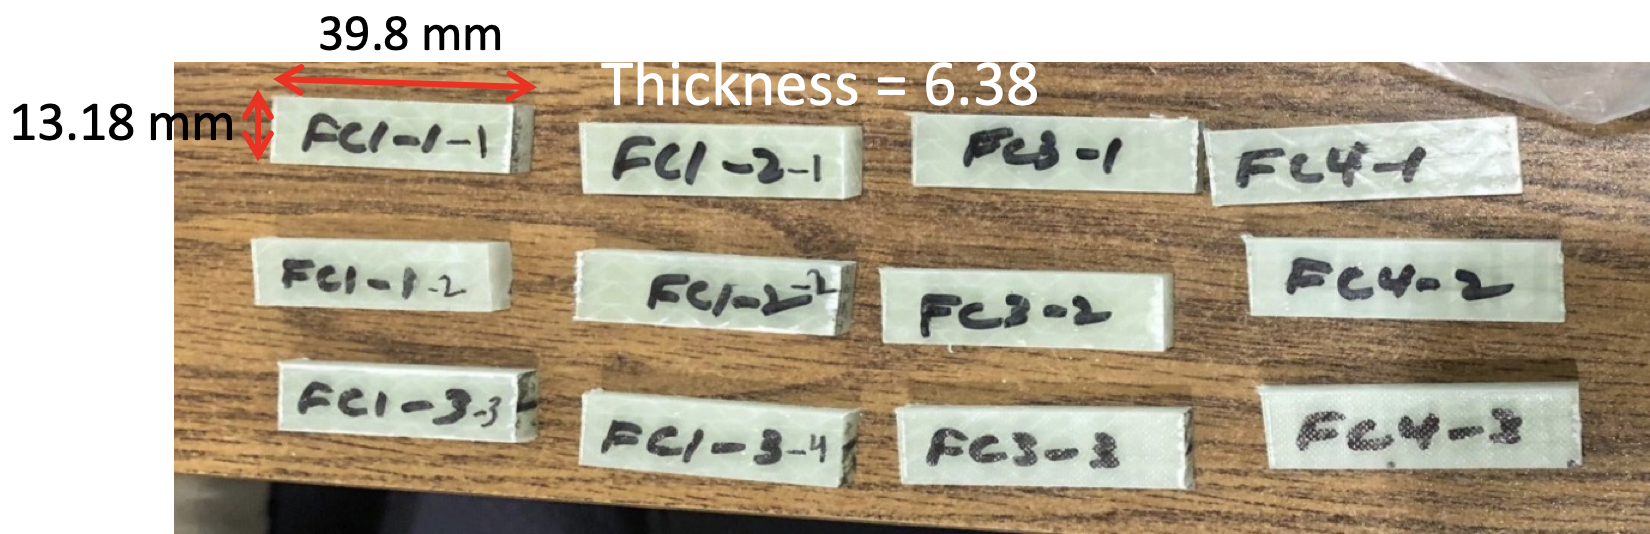 39.8 mm
Thickness = 6.38
13.18 mm
FC1-1-1
FC1-2-1
FC3-1
FC4-1
FC1-1-2
FC1-2-2
FC3-2
FC4-2
FC1-3-3
FC1-3-4
FC3-3
FC4-3